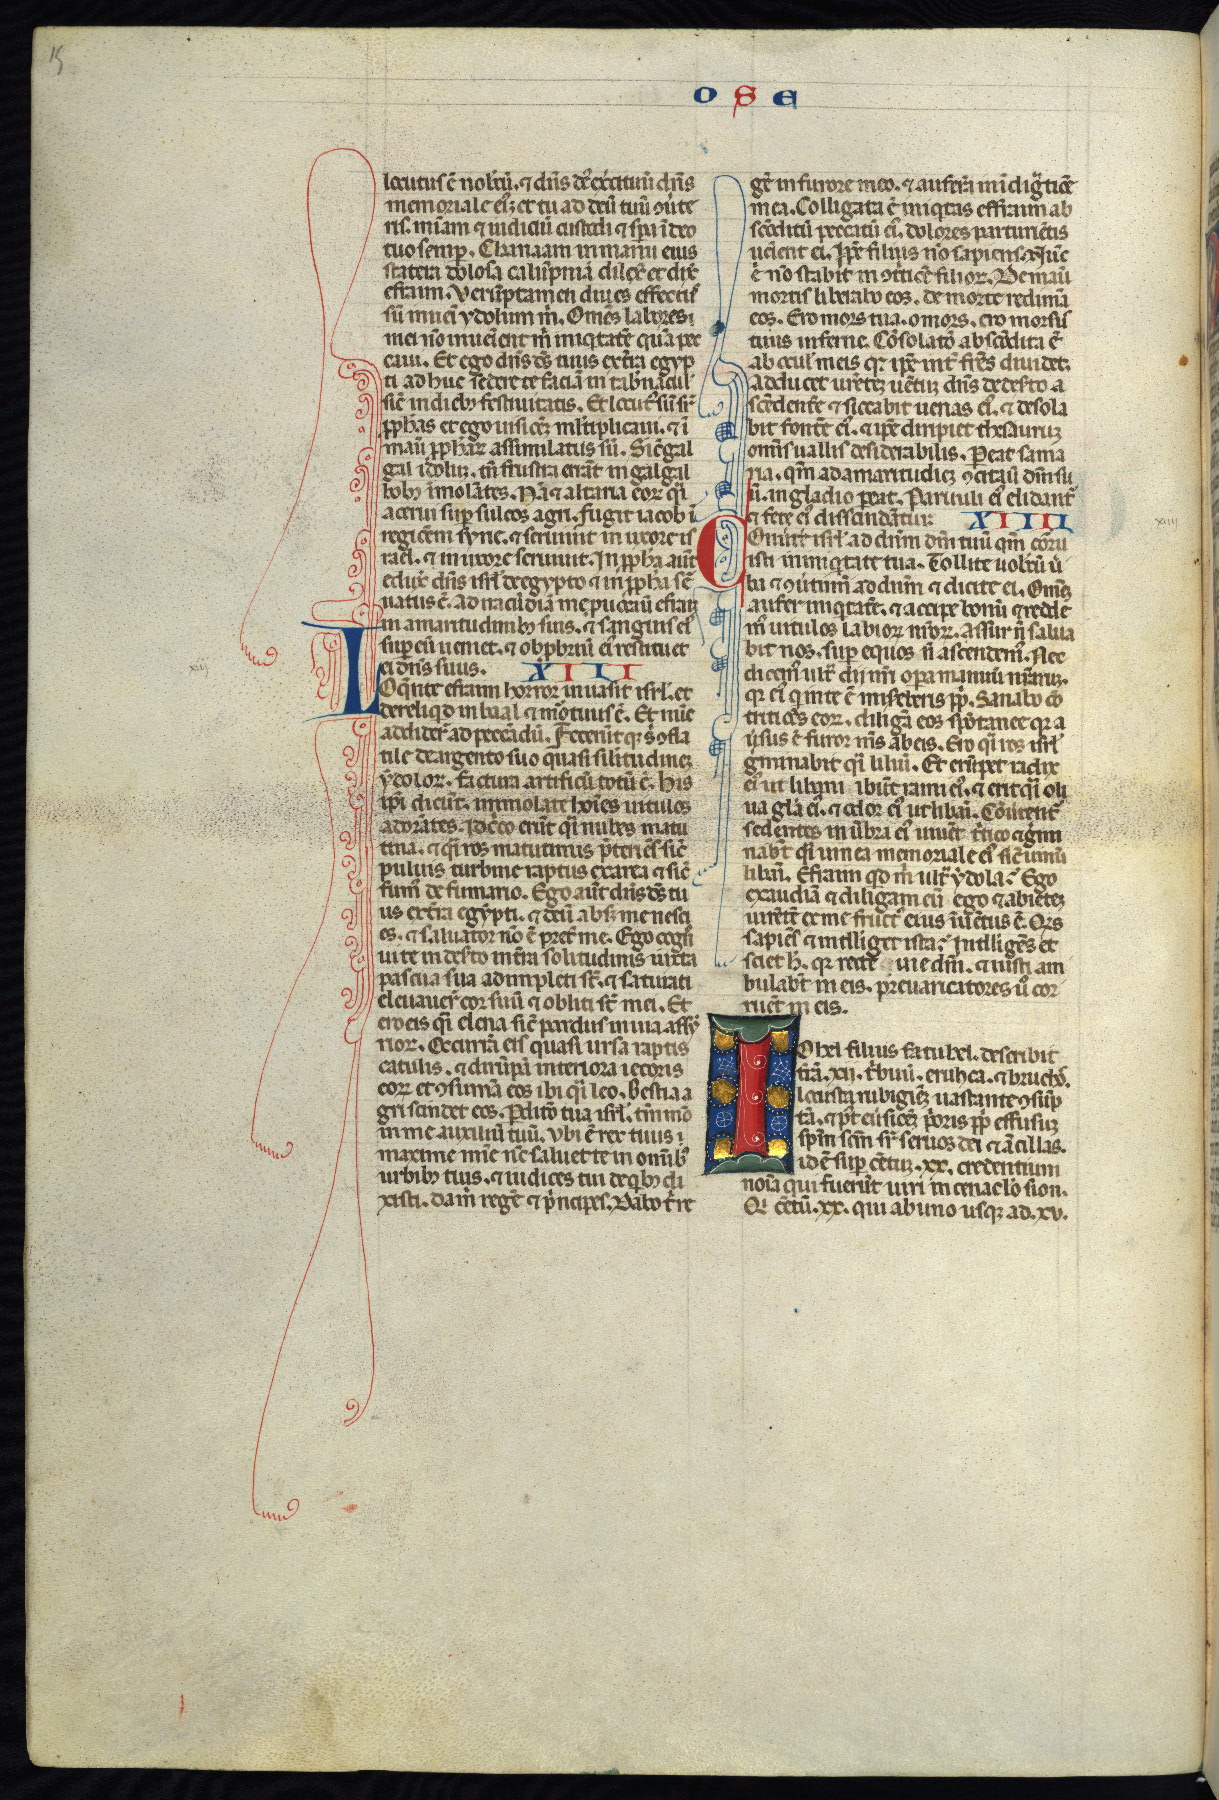 15
OSE
locutus ē nobcū. ⁊ dn̄s de᷒ exc̄ituū dn̄s
memoriale eiꝰ. et tu ad deū tuū ꝯu̾te
ris. mīam ⁊ iudiciū custodi ⁊ sp̄a ī deo
tuo semp̲. Chanaam in manu eius
statera dolosa calūpniā dilex̄ et dix̄
efraim. Verūptamen diues effectꝰ
sū inueni ydolum m̄. Om̄es labores
mei nō inueniēt m̄ iniq̇tatē quā pec
caui. Et ego dn̄s dēs tuus ex tr̄a egyp
ti ad huc sedere te faciā in tab̾nacul̾
sic̄ in dieb; festiuitatis. Et locutꝰ sū sr̄
ꝓph̄as et ego uisiōeꝫ ml̾tiplicaui. ⁊ ī
manu ꝓph̄aꝝ assimilatus sū. Si ī gal
gal idoluꝫ. tn̄ frustra erāt in galgal
bob; īmolātes. Nā ⁊ altaria eoꝝ q̄i
acerui sup̲ sulcos agri. fugit iacob ī
regiōem syrie. ⁊ seruiuit in uxore is
rael. ⁊ in uxore seruiuit. In ꝓph̄a aūt
eduxᷓ dn̄s isr̄l de egypto ⁊ in ꝓph̄a se᷒
uatus ē. Ad iracūdiā me puocauit efraī
in amaritudinib; suis. ⁊ sanguis eiꝰ
sup̲ eū ueniet. ⁊ obprob̾iū eiꝰ restituet
ei dn̄s suus. XIII
xiij
LOq̄nte efraim horror inuasit isr̄l. et
dereliq̇d in baal ⁊ mortuus ē. Et nūc
addider̄ ad peccādū. Feceruntq; s ꝯfla
tile de argento suo quasi silitudineꝫ
ydoloꝝ. factura artificū totū ē. His
ip̄i dicūt. immolate hōies uitulos
adorātes. Idc̄co erūt q̄i nubes matu
tina. ⁊ q̄i ros matutinus p̄teriēs. sic̄
puluis turbine raptus ex area ⁊ sic̄
fumꝰ de fumario. Ego aūt dn̄s dēs tu
us ex tr̄a egypti. ⁊ deū absq; me nesci
es. ⁊ saluator nō ē pret̾ me. Ego cogn̄
ui te in des̾to in tr̄a solitudinis iuxta
pascua sua adimpleti st̄. ⁊ saturati
eleuauer̄ cor suū ⁊ obliti st̄ mei. Et
ero eis q̄i leena sic̄ pardus in uia assy
rioꝝ. Occurrā eis quasi ursa raptis
catulis. ⁊ dirūpā interiora iecoris
eoꝝ et ꝯsumā eos ibi q̄i leo. Bestia a
gri scindet eos. Pdic̄o tua isr̄l. tm̄mō
in me auxiliū tuū. Vbi ē rex tuus
maxime nūc ne saluet te in omīb;
urbib; tuis. ⁊ iudices tui de q̇b; di
xisti. da m̄ regē ⁊ p̄ncipes. Dabo t̄ re
gē in furore meo. ⁊ auferā in īdigtiōe
mea. Colligata ē iniq̇tas effraim ab
scōditū peccatū eiꝰ. dolores parturiētis
uenient ei. Ip̄e filius nō sapiens. Nūc
ē nō stabit in ꝯtritiōe filioꝝ. De manu
mortis liberabo eos. de morte redimā
eos. Ero mors tua. o mors. ero morsus
tuus inferne. Cōsolatō abscōdita ē
ab ocul̾ meis qꝛ ip̄e int̾ frēs diuidet.
Adducet urēteꝫ uētuꝫ dn̄s de des̾to a
scēdente ⁊ siccabit uenas eiꝰ. ⁊ desola
bit fontē eiꝰ. ⁊ ip̄e diripiet thesauruꝫ
omīs uallis desiderabilis. Peat sama
ria. qm̄ ad amaritudiēꝫ ꝯcitauit dm̄ su
ū. in gladio peat. Paruuli eiꝰ elidant̾
⁊ fete eiꝰ discindātur. XIIII
xiiij
COnu̾te isr̄l ad dn̄m dm̄ tuū qm̄ corru
isti in iniq̇tate tua. Tollite uobcū u̾
ba ⁊ ꝯu̾timī ad dn̄m ⁊ dicite ei. Om̄eꝫ
aufer iniq̇tatē. ⁊ accipe bonū ⁊ reddeꝰ
mꝰ uitulos labioꝝ nr̄oꝝ. Assur n̄ salua
bit nos. sup̲ equos n̄ ascendemꝰ. Nec
dicemꝰ ult̾ᷓ dij nr̄i opa manuū nr̄aruꝫ.
qꝛ eiꝰ q̇ in te ē misereberis pp̄li. Sanabo cō
tritiōes eoꝝ. diligā eos spōtanee qꝛ a
uersus ē furor mīs ab eis. Ero q̄i ros isr̄l
g̾minabit q̄i liliū. Et erūpet radix
eiꝰ ut libani ibūt rami eiꝰ. ⁊ erit q̄i oli
ua glā eiꝰ. ⁊ odor eiꝰ ut libāi. Cōuertent̾
sedentes in ūbra eiꝰ uiuēt tritico ⁊ g̾mi
nabūt q̄i uinea memoriale eiꝰ sic̄ uinū
libani. Efraim qd̄ m̄ ult̾ᷓ ydola. Ego
exaudiā ⁊ diligam eū ego ⁊ abieteꝫ
uirētē ex me fruct̾ eius īuētus ē. Qis
sapiēs ⁊ intelliget ista. Intelligēs et
sciet h̾. qꝛ recte uie dn̄i. ⁊ iusti am
bulabūt in eis. preuaricatores u̾ cor
ruēt in eis.
IOhel filius fatuhel. describit
tr̄ā .xij. tribuū. eruca. ⁊ bruchō.
locusta rubigineꝫ uastante ꝯsūp
tā. ⁊ pꝰt eusiōeꝫ p̄oris pp̄li effusuꝫ
sp̄m scm̄ sr̄ seruos dei ⁊ ācillas.
id ē sup̲ cētuꝫ .xx. credentium
noīa qui fuerūt uiri in cenaclo sion.
Qi cētū .xx. qui ab uno usq; ad .xv.